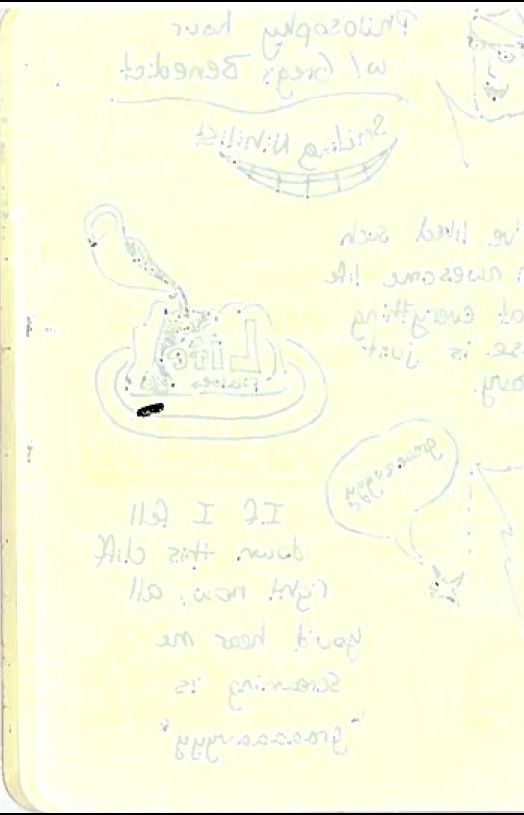 Philosophy hour
w/ Greg's Benedict
Smiling Nihilist
I've lived such
awesome life
everything
is just
Life
gravavyyy
If I fell
down this cliff
right now, all
you'd hear me
screaming is
"graaaaavyyy"